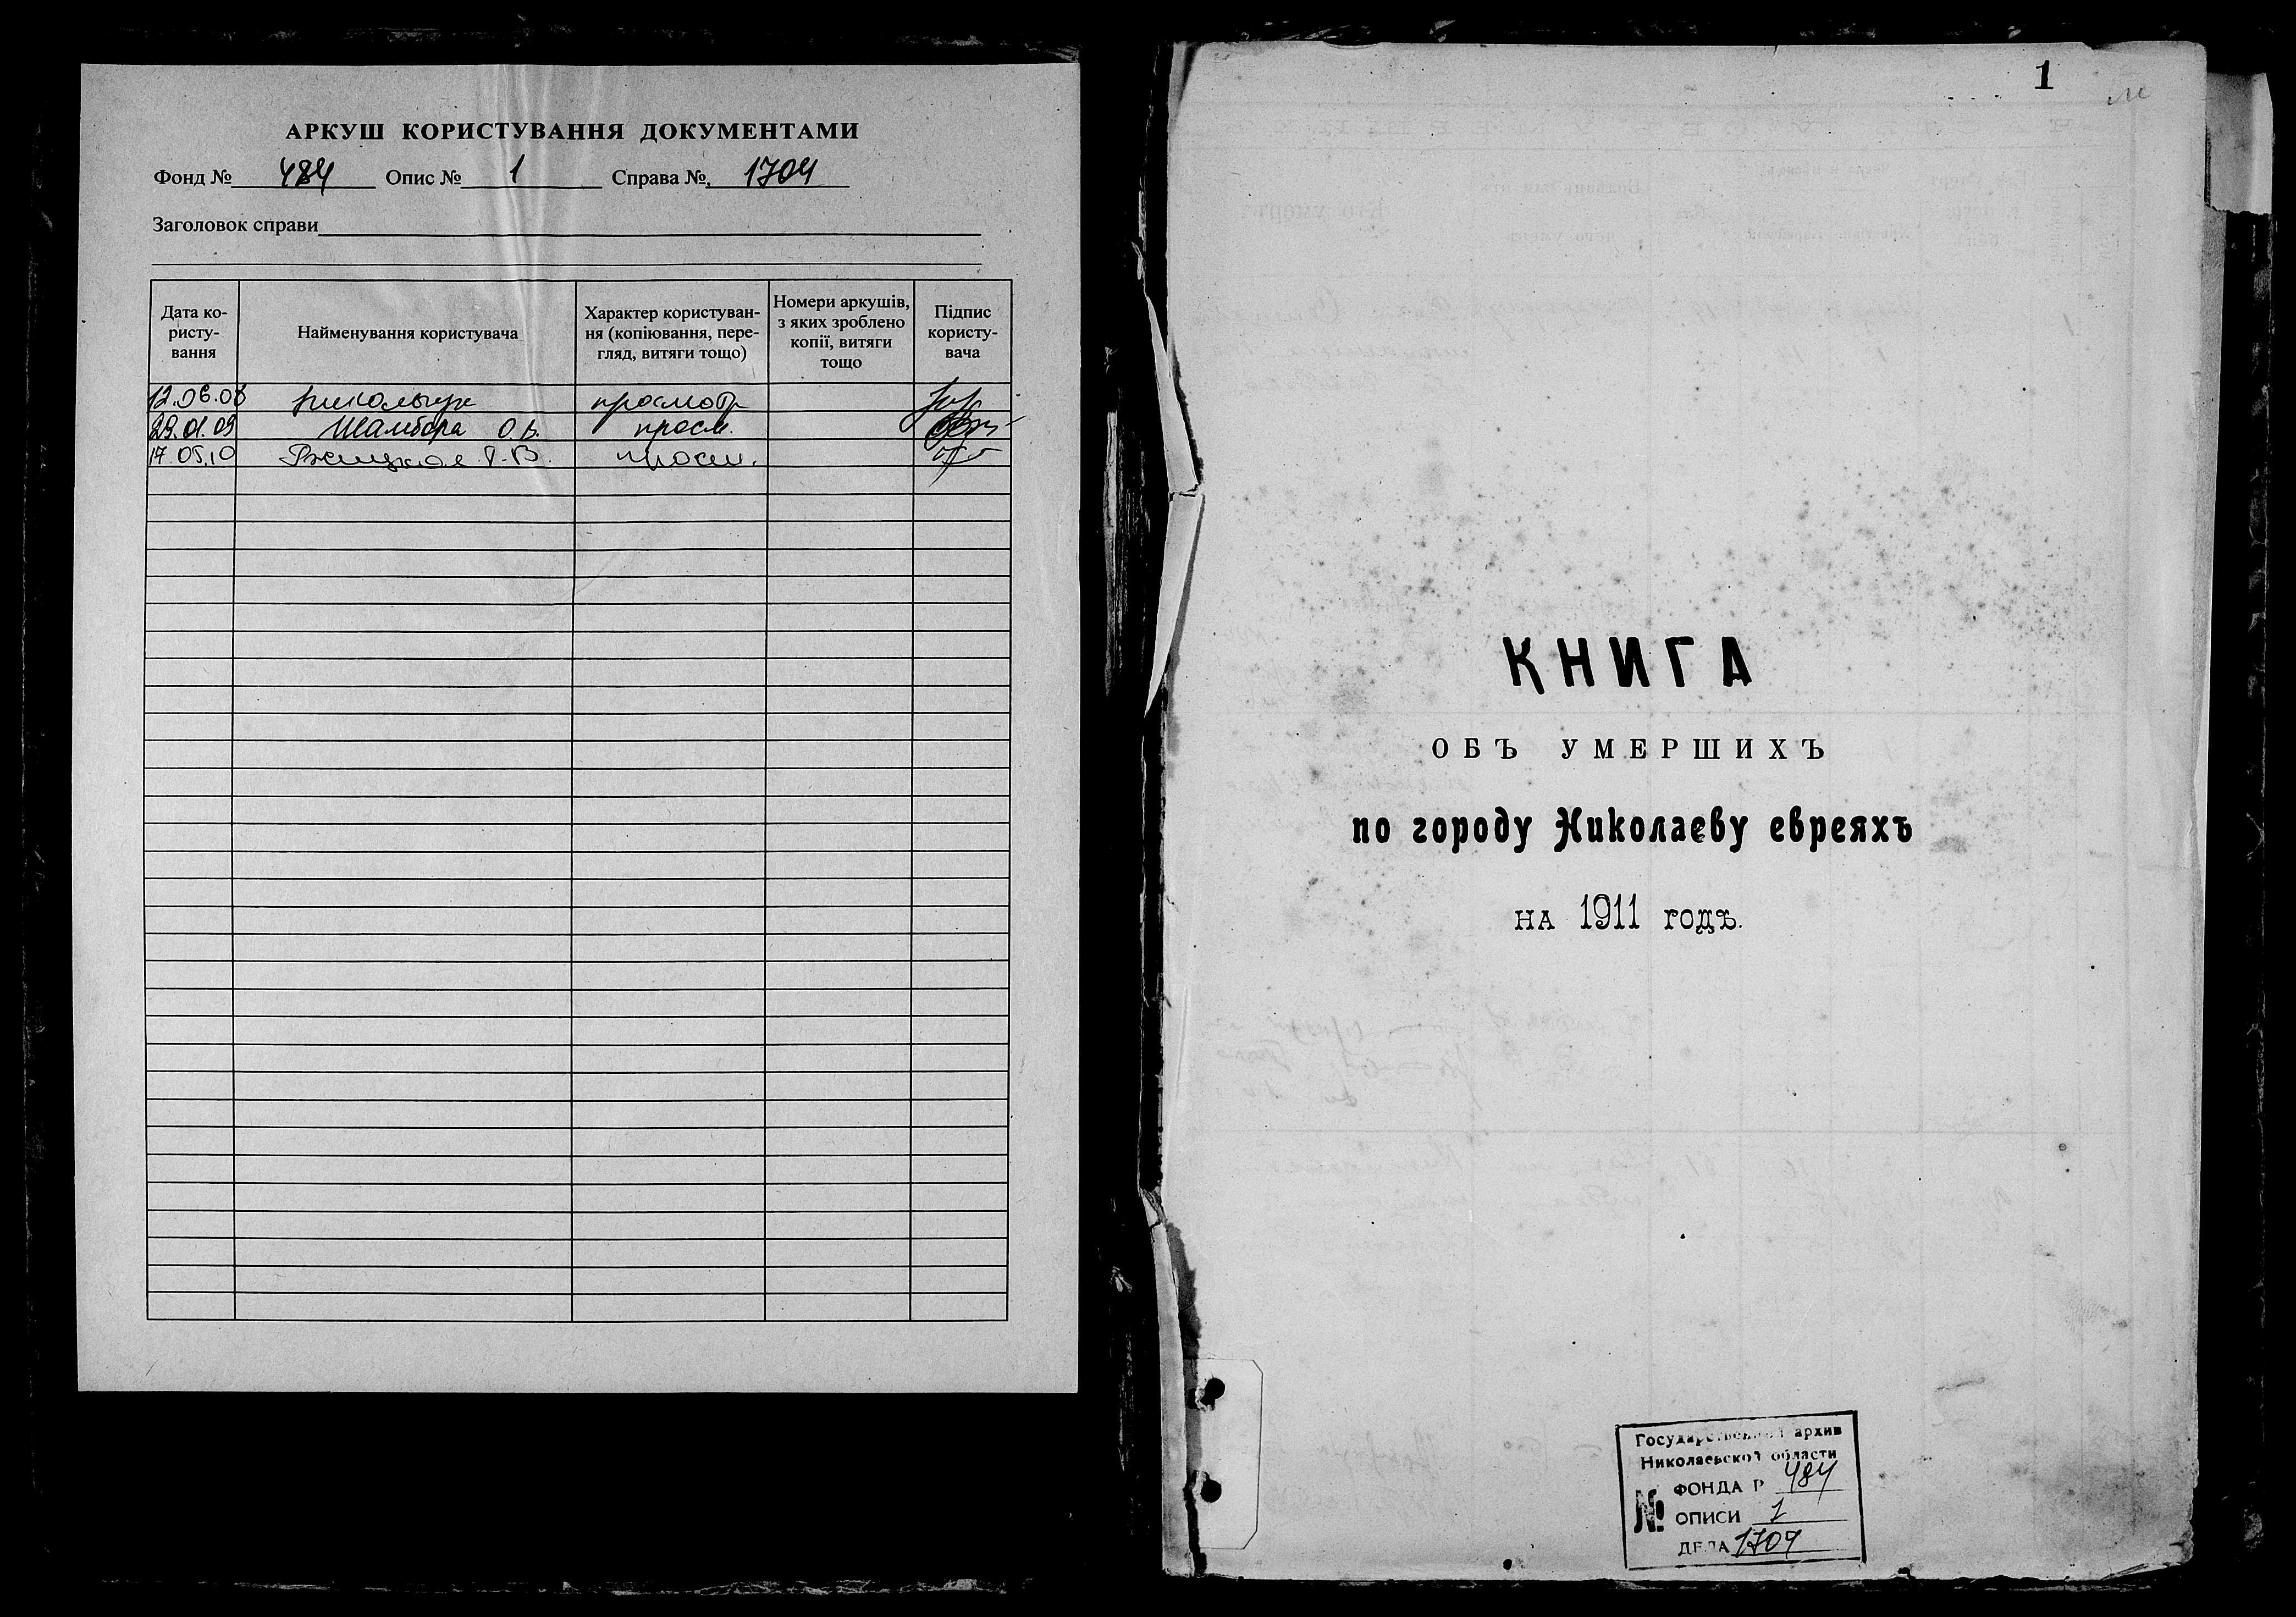 АРКУШ КОРИСТУВАННЯ ДОКУМЕНТАМИ
Фонд № 484 Опис № 1 Справа №. 1704
Заголовок справи
Дата ко-
ристу-
вання
Найменування користувача
Характер користуван-
ня (копіювання, пере-
гляд, витяги тощо)
Номери аркушів,
з яких зроблено
копії, витяги
тощо
Підпис
користу-
вача
12.06.08 просмотр
29.01.09 Шамбора О.В. просм.
17.05.10 просм.
1
КНИГА
ОБЪ УМЕРШИХЪ
по городу Николаеву евреяхъ
НА 1911 ГОДЪ.
Государственный архив
Николаевской области
№ ФОНДА Р 484
ОПИСИ 1
ДЕЛА 1704